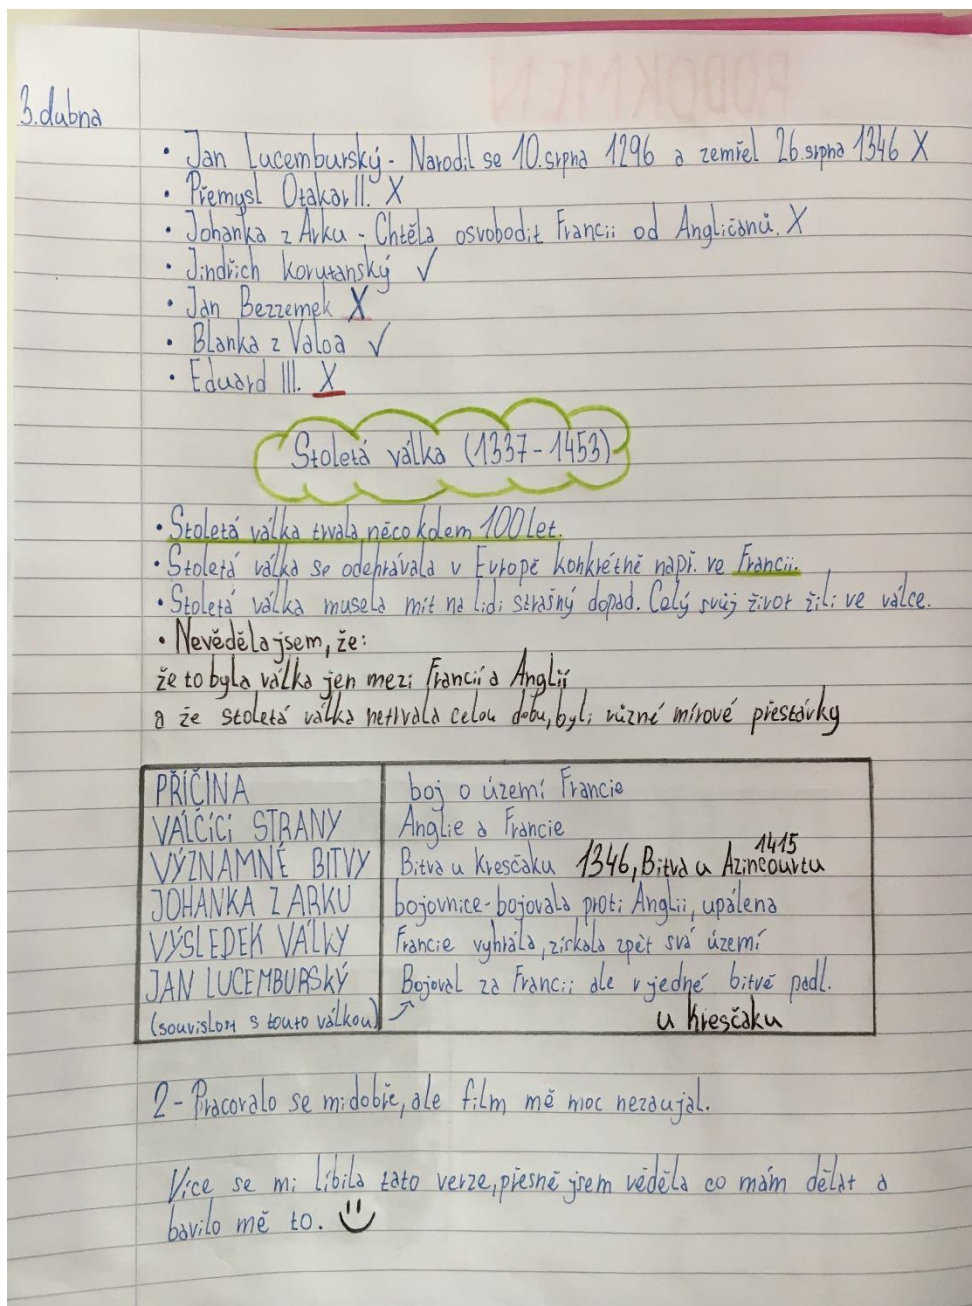 RODOKMEN
3.dubna
• Jan Lucemburský - Narodil se 10.srpna 1296 a zemřel 26.srpna 1346 X
• Přemysl Otakar II. X
• Johanka z Arku - Chtěla osvobodit Francii od Angličanů. X
• Jindřich Korutanský ✓
• Jan Bezzemek X
• Blanka z Valoa ✓
• Eduard III. X
Stoletá válka (1337-1453)
• Stoletá válka trvala něco kolem 100 let.
• Stoletá válka se odehrávala v Evropě konkrétně např. ve Francii.
• Stoletá válka musela mít na lidi strašný dopad. Celý svůj život žili ve válce.
• Nevěděla jsem, že:
že to byla válka jen mezi Francií a Anglií
a že stoletá válka netrvala celou dobu, byli různé mírové přestávky
PŘÍČINA boj o území Francie
VÁLČÍCÍ STRANY Anglie a Francie
VÝZNAMNÉ BITVY Bitva u Kresčaku 1346, Bitva u Azincourtu 1415
JOHANKA Z ARKU bojovnice-bojovala proti Anglii, upálena
VÝSLEDEK VÁLKY Francie vyhrála, získala zpět svá území
JAN LUCEMBURSKÝ Bojoval za Francii ale v jedné bitvě padl.
(souvislost s touto válkou) → u Kresčaku
2 - Pracovalo se mi dobře, ale film mě moc nezaujal.
Více se mi líbila tato verze, přesně jsem věděla co mám dělat a
bavilo mě to.